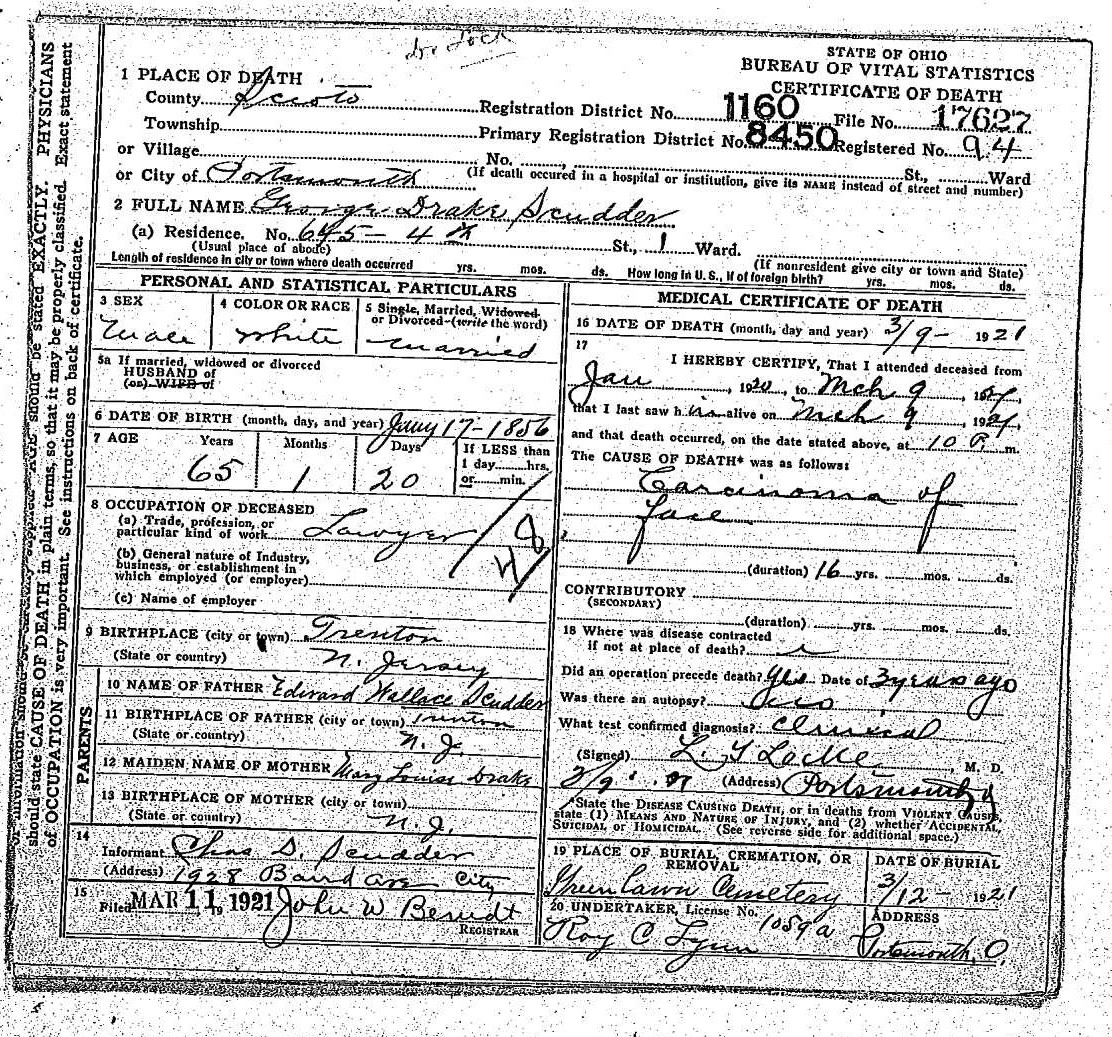 STATE OF OHIO
BUREAU OF VITAL STATISTICS
CERTIFICATE OF DEATH
1 PLACE OF DEATH
County Scioto Registration District No. 1160 File No. 17627
Township Primary Registration District No. 8450 Registered No. 94
or Village No. , St., Ward
or City of Portsmouth (If death occured in a hospital or institution, give its NAME instead of street and number)
2 FULL NAME George Drake Scudder
(a) Residence. No. 645 - 4th St., 1 Ward.
(Usual place of abode) (If nonresident give city or town and State)
Length of residence in city or town where death occurred yrs. mos. ds. How long in U. S., if of foreign birth? yrs. mos. ds.
PERSONAL AND STATISTICAL PARTICULARS
3 SEX
Male
4 COLOR OR RACE
White
5 Single, Married, Widowed or Divorced (write the word)
Married
5a If married, widowed or divorced
HUSBAND of
(or) WIFE of
6 DATE OF BIRTH (month, day, and year) Jany 17 - 1856
7 AGE Years Months Days If LESS than
65 1 20 1 day hrs.
or min.
8 OCCUPATION OF DECEASED
(a) Trade, profession, or
particular kind of work Lawyer
(b) General nature of Industry,
business, or establishment in
which employed (or employer)
(c) Name of employer
9 BIRTHPLACE (city or town) Trenton
(State or country) N. Jersey
PARENTS
10 NAME OF FATHER Edward Wallace Scudder
11 BIRTHPLACE OF FATHER (city or town) Trenton
(State or country) N. J.
12 MAIDEN NAME OF MOTHER Mary Louisa Drake
13 BIRTHPLACE OF MOTHER (city or town)
(State or country) N. J.
14
Informant Chas D. Scudder
(Address) 1928 Baird ave City
15
Filed MAR 11, 19 1921 John W Berndt
REGISTRAR
MEDICAL CERTIFICATE OF DEATH
16 DATE OF DEATH (month, day and year) 3/9 - 1921
17
I HEREBY CERTIFY, That I attended deceased from
Jan , 1920, to Mch 9 , 1921,
that I last saw him alive on Mch 9 , 1921,
and that death occurred, on the date stated above, at 10 P. m.
The CAUSE OF DEATH* was as follows:
Carcinoma of
face
(duration) 16 yrs. mos. ds.
CONTRIBUTORY
(SECONDARY)
(duration) yrs. mos. ds.
18 Where was disease contracted
if not at place of death?
Did an operation precede death? Yes Date of 3 years ago
Was there an autopsy?
What test confirmed diagnosis? Clinical
(Signed) L. T Locke , M. D.
3/9 (Address) Portsmouth O
*State the DISEASE CAUSING DEATH, or in deaths from VIOLENT CAUSES, state (1) MEANS AND NATURE OF INJURY, and (2) whether ACCIDENTAL, SUICIDAL or HOMICIDAL. (See reverse side for additional space.)
19 PLACE OF BURIAL, CREMATION, OR REMOVAL
Greenlawn Cemetery
DATE OF BURIAL
3/12 - 1921
20 UNDERTAKER, License No. 1059a
Roy C Lynn
ADDRESS
Portsmouth, O.
should state CAUSE OF DEATH in plain terms, so that it may be properly classified. Exact statement
of OCCUPATION is very important. See instructions on back of certificate.
AGE should be stated EXACTLY. PHYSICIANS